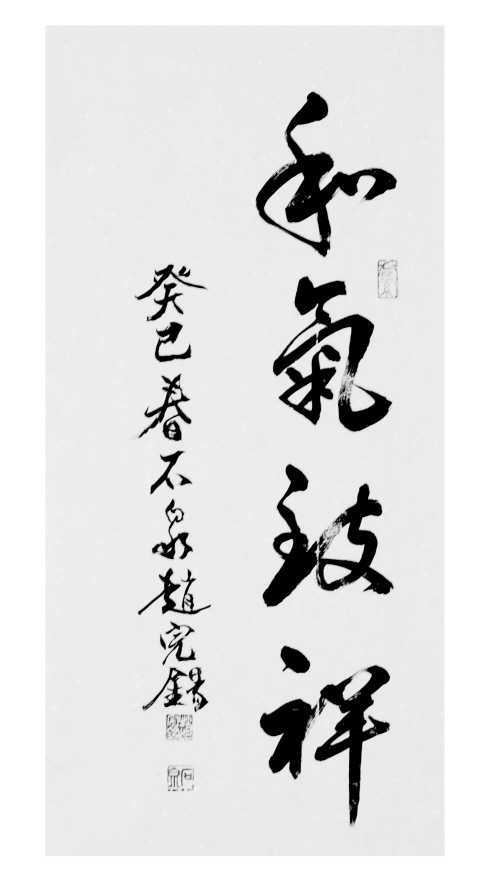 和氣致祥
癸巳春石泉趙完錫